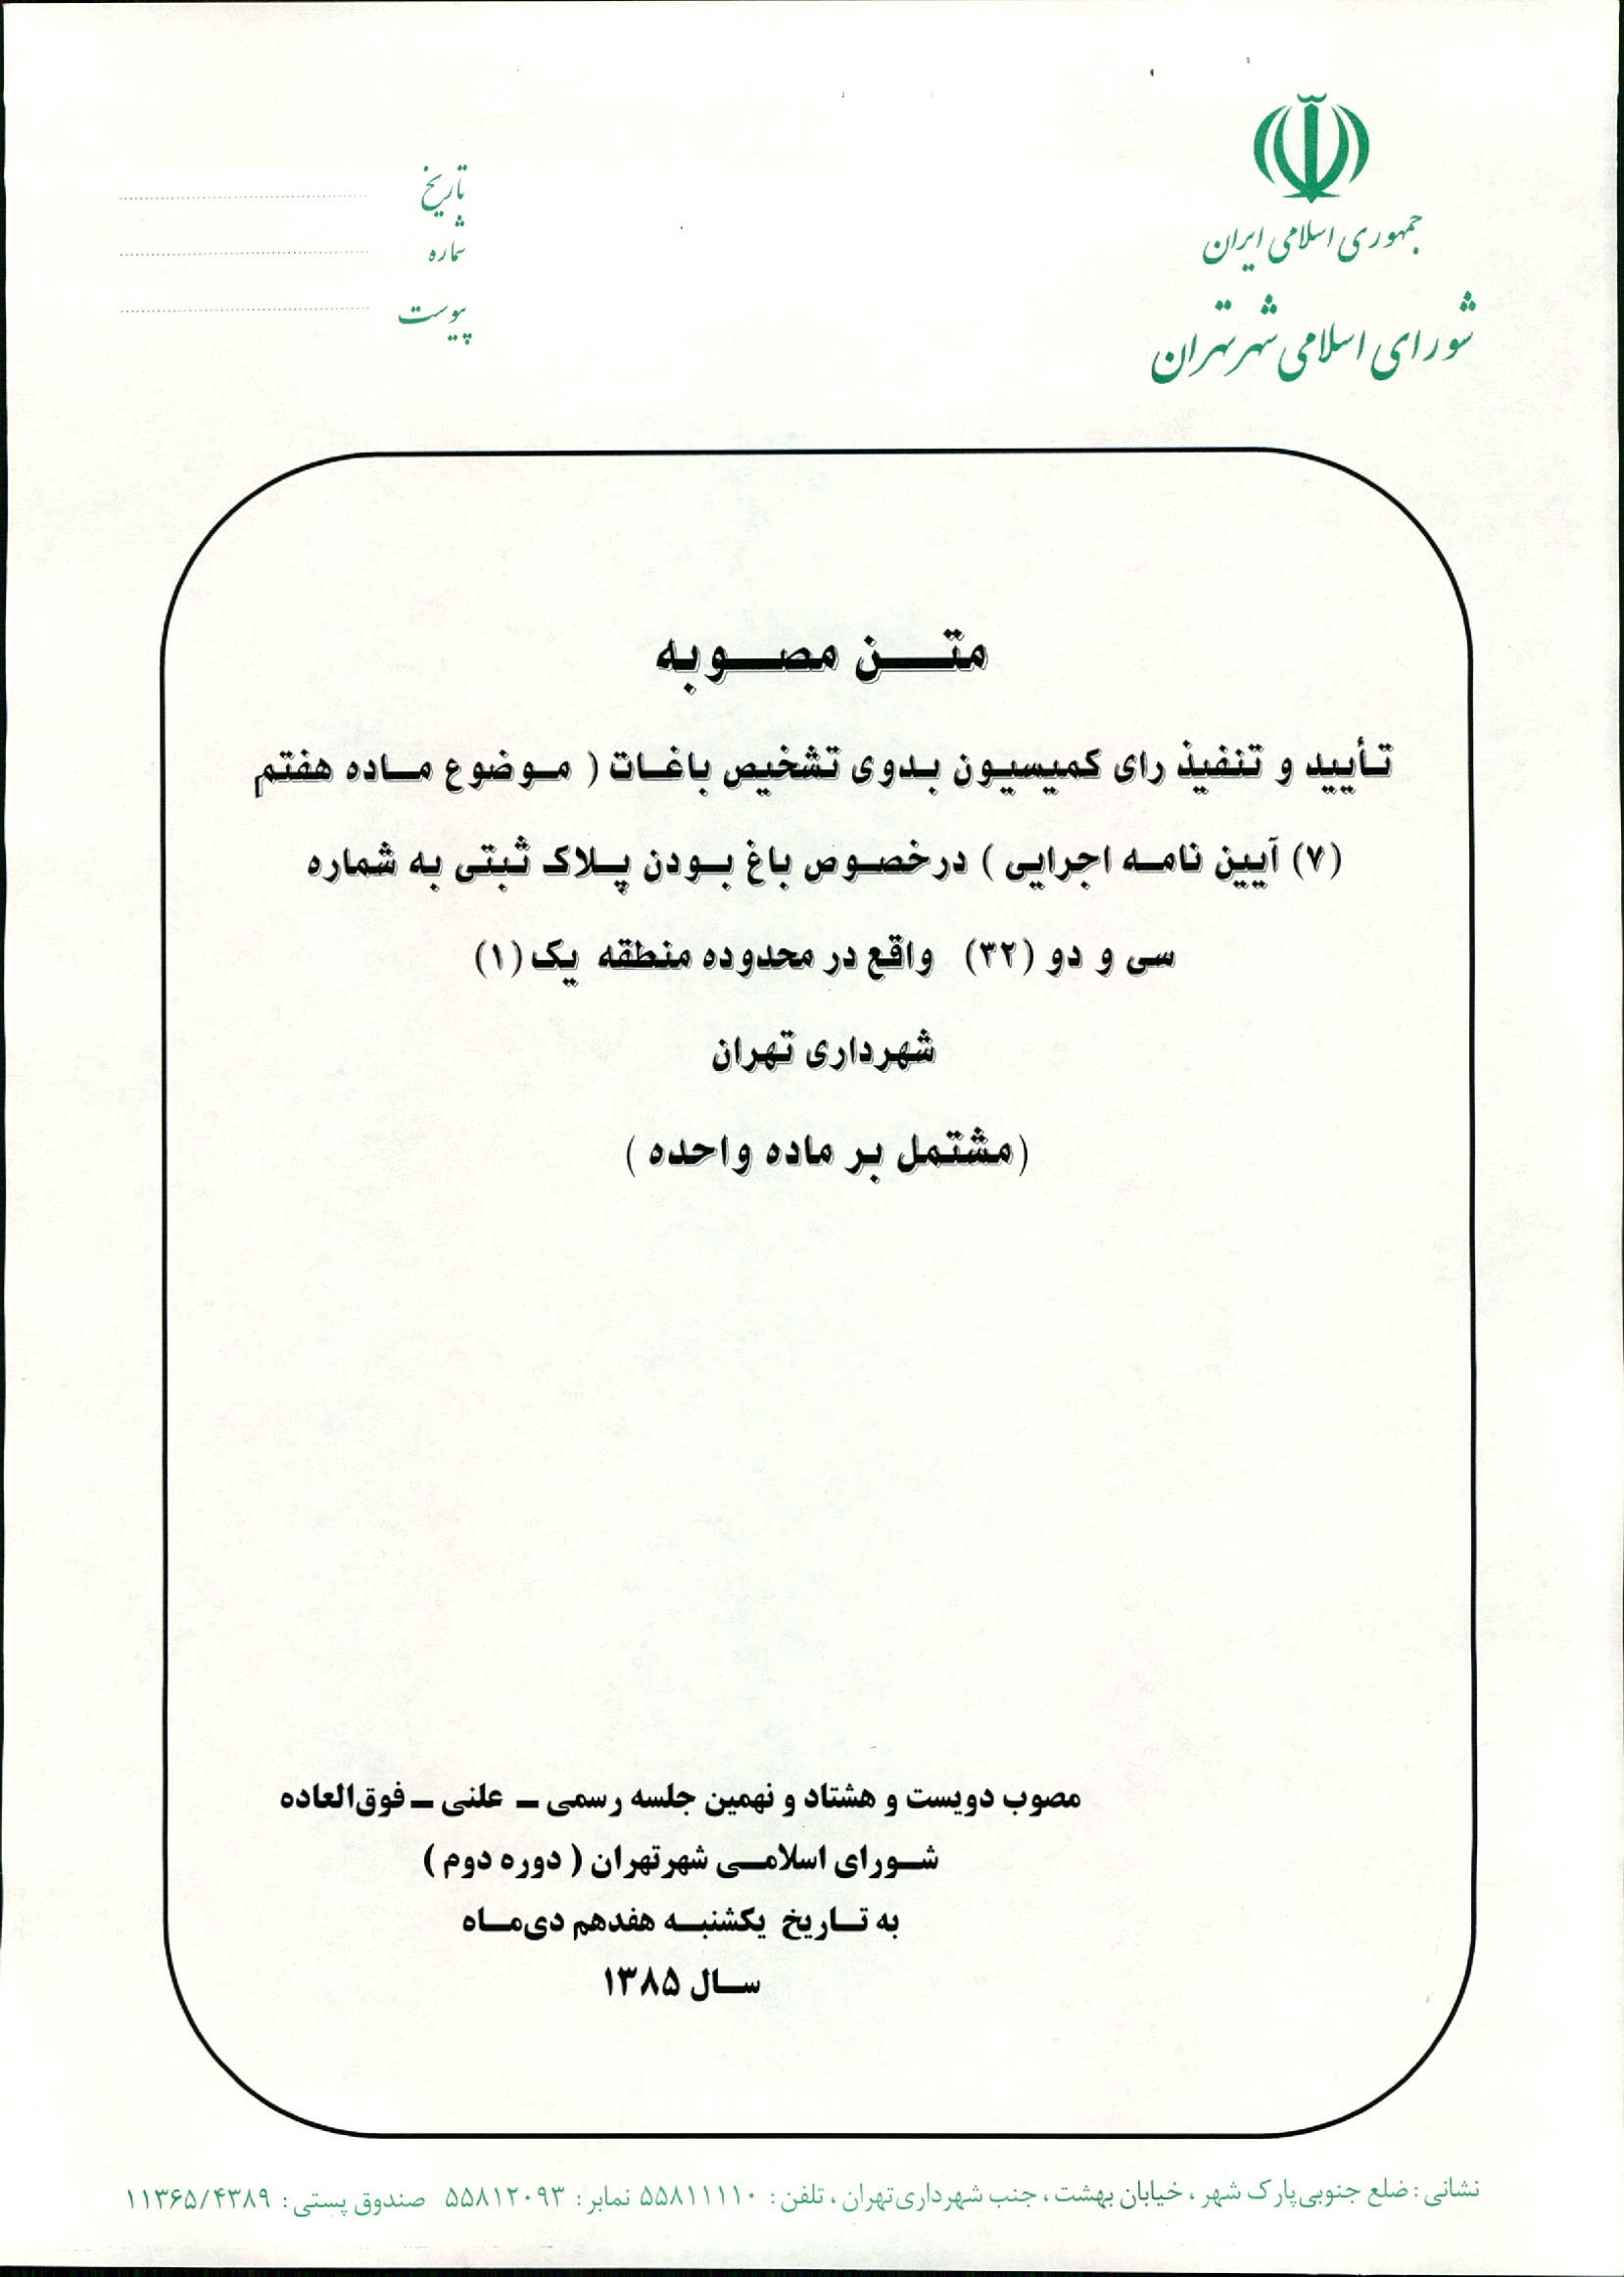 جمهوری اسلامی ایران
شورای اسلامی شهر تهران
تاریخ
شماره
پیوست
متن مصوبه
تأیید و تنفیذ رای کمیسیون بدوی تشخیص باغات ( موضوع ماده هفتم
(۷) آیین نامه اجرایی ) درخصوص باغ بودن پلاک ثبتی به شماره
سی و دو (۳۲) واقع در محدوده منطقه یک (۱)
شهرداری تهران
(مشتمل بر ماده واحده )
مصوب دویست و هشتاد و نهمین جلسه رسمی – علنی – فوق‌العاده
شورای اسلامی شهرتهران ( دوره دوم )
به تاریخ یکشنبه هفدهم دی‌ماه
سال ۱۳۸۵
نشانی : ضلع جنوبی پارک شهر ، خیابان بهشت ، جنب شهرداری تهران ، تلفن : ۵۵۸۱۱۱۱۰ نمابر : ۵۵۸۱۲۰۹۳ صندوق پستی : ۱۱۳۶۵/۴۳۸۹